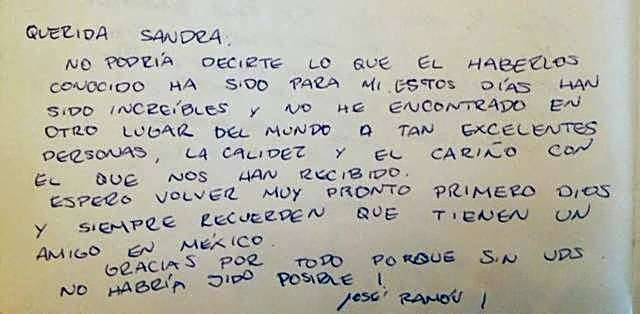 QUERIDA SANDRA.
NO PODRÍA DECIRTE LO QUE EL HABERLOS
CONOCIDO HA SIDO PARA MI, ESTOS DÍAS HAN
SIDO INCREÍBLES Y NO HE ENCONTRADO EN
OTRO LUGAR DEL MUNDO A TAN EXCELENTES
PERSONAS, LA CALIDEZ Y EL CARIÑO CON
EL QUE NOS HAN RECIBIDO.
ESPERO VOLVER MUY PRONTO PRIMERO DIOS
Y SIEMPRE RECUERDEN QUE TIENEN UN
AMIGO EN MÉXICO.
GRACIAS POR TODO PORQUE SIN UDS.
NO HABRÍA SIDO POSIBLE!
JOSÉ RAMÓN